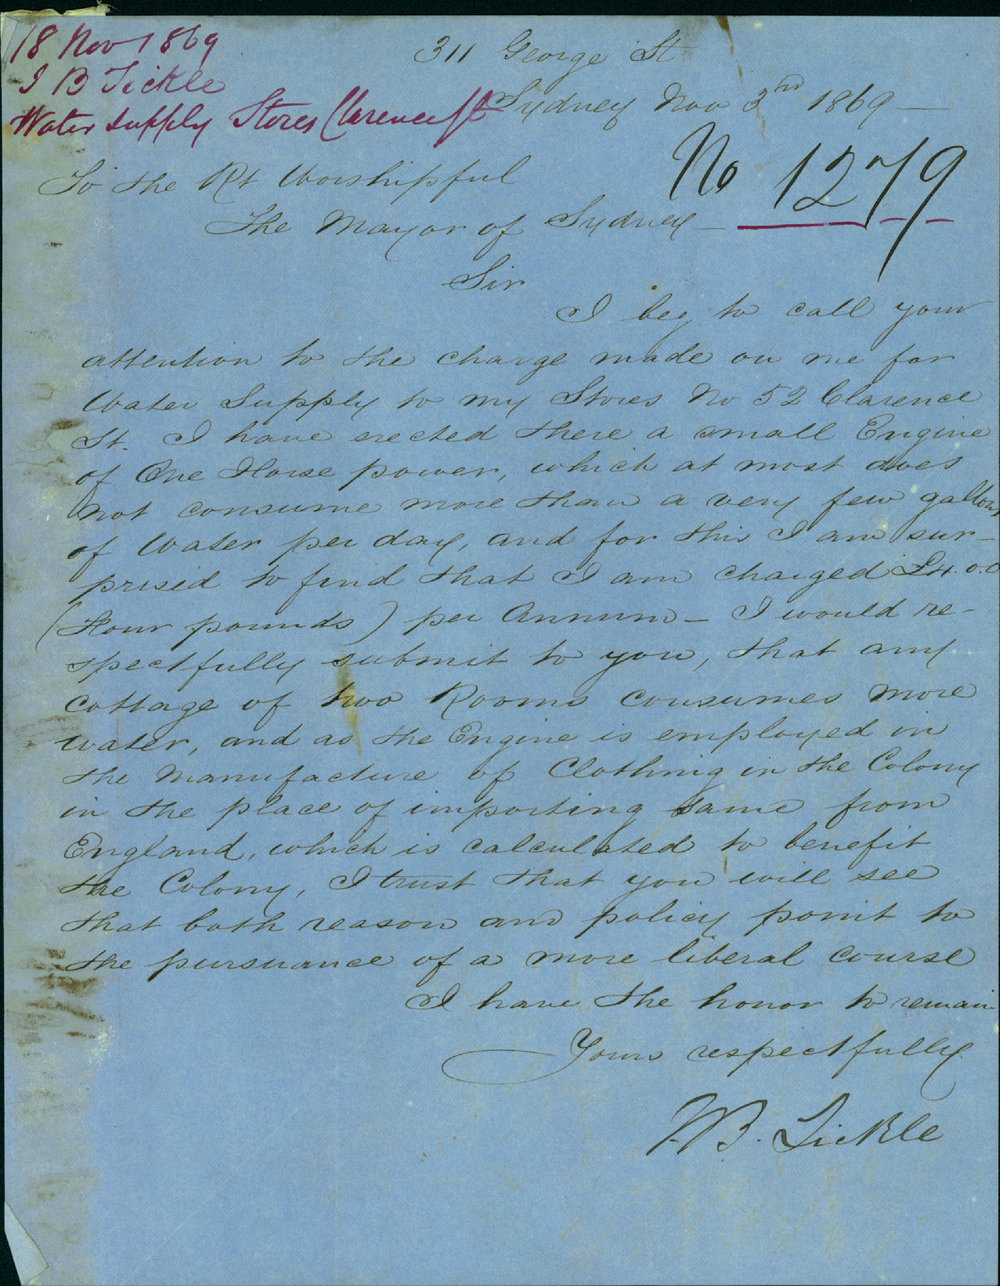 18 Nov 1869
J B Tickle
Water supply Stores Clarence St
311 George St
Sydney Nov 3rd 1869 —
No 1279
To the Rt Worshipful
The Mayor of Sydney —
Sir
I beg to call your
attention to the charge made on me for
Water Supply to my Stores No 52 Clarence
St. I have erected there a small Engine
of One Horse power, which at most does
not consume more than a very few gallons
of Water per day, and for this I am sur-
prised to find that I am charged £4.0.0
(Four pounds) per Annum — I would re-
spectfully submit to you, that any
cottage of two Rooms consumes more
water, and as the Engine is employed in
the Manufacture of Clothing in the Colony
in the place of importing same from
England, which is calculated to benefit
the Colony, I trust that you will see
that both reason and policy point to
the pursuance of a more liberal course
I have the honor to remain
Yours respectfully
J.B. Tickle